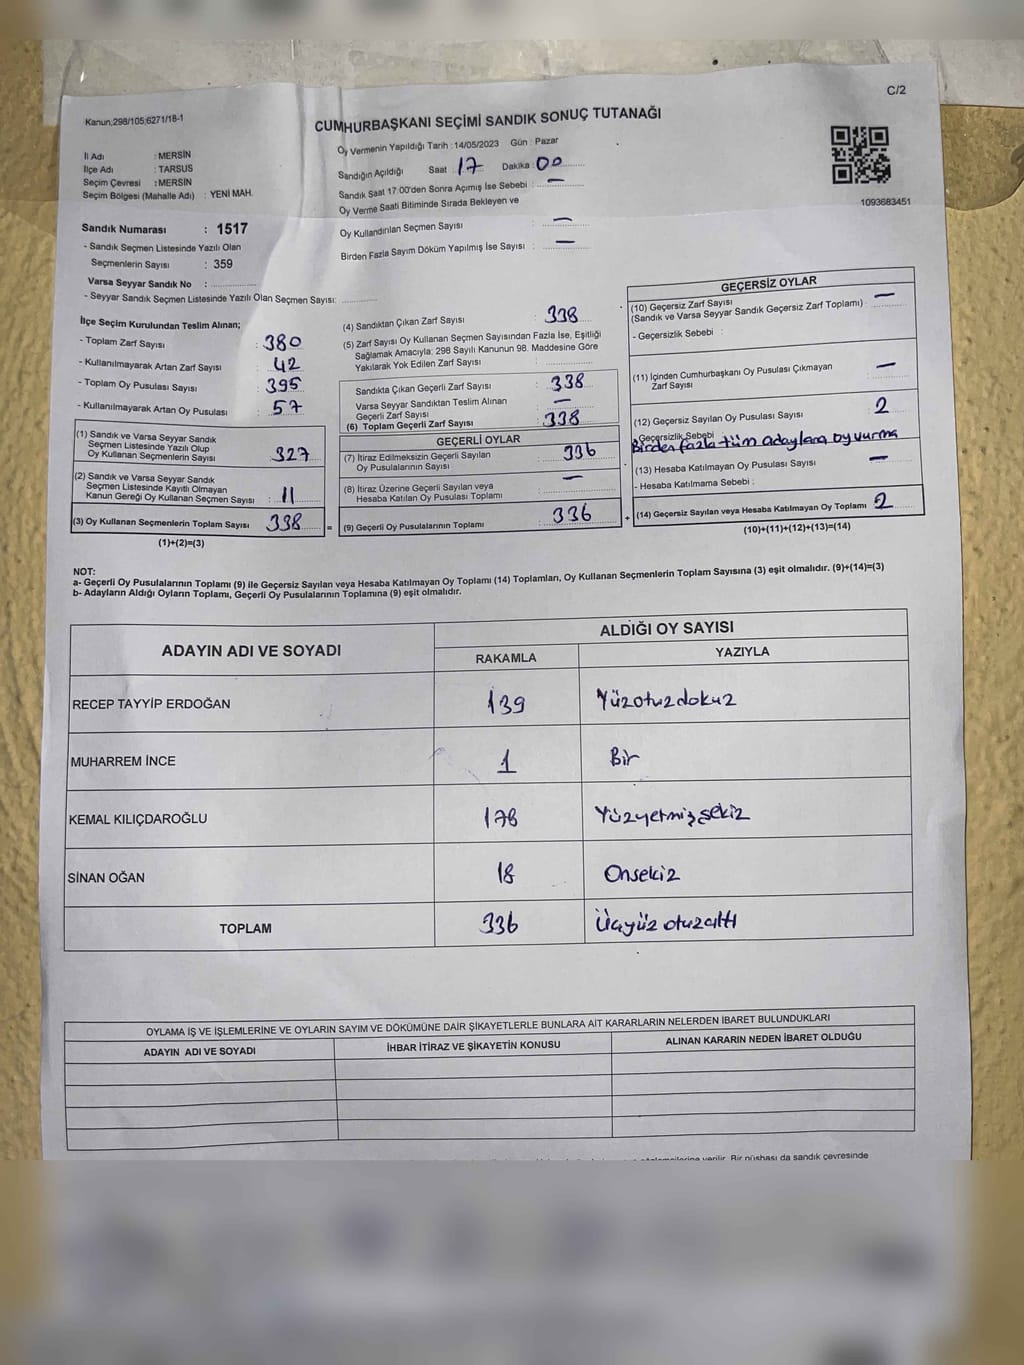 C/2
Kanun;298/105;6271/18-1
CUMHURBAŞKANI SEÇİMİ SANDIK SONUÇ TUTANAĞI
İl Adı : MERSİN
İlçe Adı : TARSUS
Seçim Çevresi : MERSİN
Seçim Bölgesi (Mahalle Adı) : YENİ MAH.
Oy Vermenin Yapıldığı Tarih :14/05/2023 Gün : Pazar
Sandığın Açıldığı Saat 17 Dakika 00
Sandık Saat 17.00'den Sonra Açımış İse Sebebi : —
Oy Verme Saati Bitiminde Sırada Bekleyen ve
Oy Kullandırılan Seçmen Sayısı : —
Birden Fazla Sayım Döküm Yapılmış İse Sayısı : —
1093683451
Sandık Numarası : 1517
- Sandık Seçmen Listesinde Yazılı Olan
Seçmenlerin Sayısı : 359
Varsa Seyyar Sandık No :
- Seyyar Sandık Seçmen Listesinde Yazılı Olan Seçmen Sayısı:
İlçe Seçim Kurulundan Teslim Alınan;
- Toplam Zarf Sayısı : 380
- Kullanılmayarak Artan Zarf Sayısı : 42
- Toplam Oy Pusulası Sayısı : 395
- Kullanılmayarak Artan Oy Pusulası : 57
(1) Sandık ve Varsa Seyyar Sandık
Seçmen Listesinde Yazılı Olup
Oy Kullanan Seçmenlerin Sayısı : 327
(2) Sandık ve Varsa Seyyar Sandık
Seçmen Listesinde Kayıtlı Olmayan
Kanun Gereği Oy Kullanan Seçmen Sayısı : 11
(3) Oy Kullanan Seçmenlerin Toplam Sayısı 338
(1)+(2)=(3)
=
(4) Sandıktan Çıkan Zarf Sayısı : 338
(5) Zarf Sayısı Oy Kullanan Seçmen Sayısından Fazla İse, Eşitliği
Sağlamak Amacıyla; 298 Sayılı Kanunun 98. Maddesine Göre
Yakılarak Yok Edilen Zarf Sayısı :
Sandıkta Çıkan Geçerli Zarf Sayısı : 338
Varsa Seyyar Sandıktan Teslim Alınan
Geçerli Zarf Sayısı : —
(6) Toplam Geçerli Zarf Sayısı : 338
GEÇERLİ OYLAR
(7) İtiraz Edilmeksizin Geçerli Sayılan
Oy Pusulalarının Sayısı : 336
(8) İtiraz Üzerine Geçerli Sayılan veya
Hesaba Katılan Oy Pusulası Toplamı : —
(9) Geçerli Oy Pusulalarının Toplamı : 336
+
GEÇERSİZ OYLAR
(10) Geçersiz Zarf Sayısı : —
(Sandık ve Varsa Seyyar Sandık Geçersiz Zarf Toplamı)
- Geçersizlik Sebebi :
(11) İçinden Cumhurbaşkanı Oy Pusulası Çıkmayan
Zarf Sayısı : —
(12) Geçersiz Sayılan Oy Pusulası Sayısı : 2
- Geçersizlik Sebebi
Birden fazla tüm adaylara oy vurma
(13) Hesaba Katılmayan Oy Pusulası Sayısı : —
- Hesaba Katılmama Sebebi :
(14) Geçersiz Sayılan veya Hesaba Katılmayan Oy Toplamı 2
(10)+(11)+(12)+(13)=(14)
NOT:
a- Geçerli Oy Pusulalarının Toplamı (9) ile Geçersiz Sayılan veya Hesaba Katılmayan Oy Toplamı (14) Toplamları, Oy Kullanan Seçmenlerin Toplam Sayısına (3) eşit olmalıdır. (9)+(14)=(3)
b- Adayların Aldığı Oyların Toplamı, Geçerli Oy Pusulalarının Toplamına (9) eşit olmalıdır.
ADAYIN ADI VE SOYADI
ALDIĞI OY SAYISI
RAKAMLA YAZIYLA
RECEP TAYYİP ERDOĞAN 139 Yüzotuzdokuz
MUHARREM İNCE 1 Bir
KEMAL KILIÇDAROĞLU 178 Yüzyetmişsekiz
SİNAN OĞAN 18 Onsekiz
TOPLAM 336 Üçyüz otuzaltı
OYLAMA İŞ VE İŞLEMLERİNE VE OYLARIN SAYIM VE DÖKÜMÜNE DAİR ŞİKAYETLERLE BUNLARA AİT KARARLARIN NELERDEN İBARET BULUNDUKLARI
ADAYIN ADI VE SOYADI İHBAR İTİRAZ VE ŞİKAYETİN KONUSU ALINAN KARARIN NEDEN İBARET OLDUĞU
verilir. Bir nüshası da sandık çevresinde